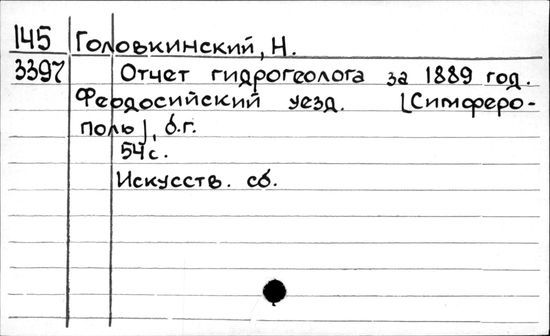 145 Головкинский, Н.
3397 Отчет гидрогеолога за 1889 год.
Феодосийский уезд. [Симферо-
поль], б.г.
54 с.
Искусств. сб.